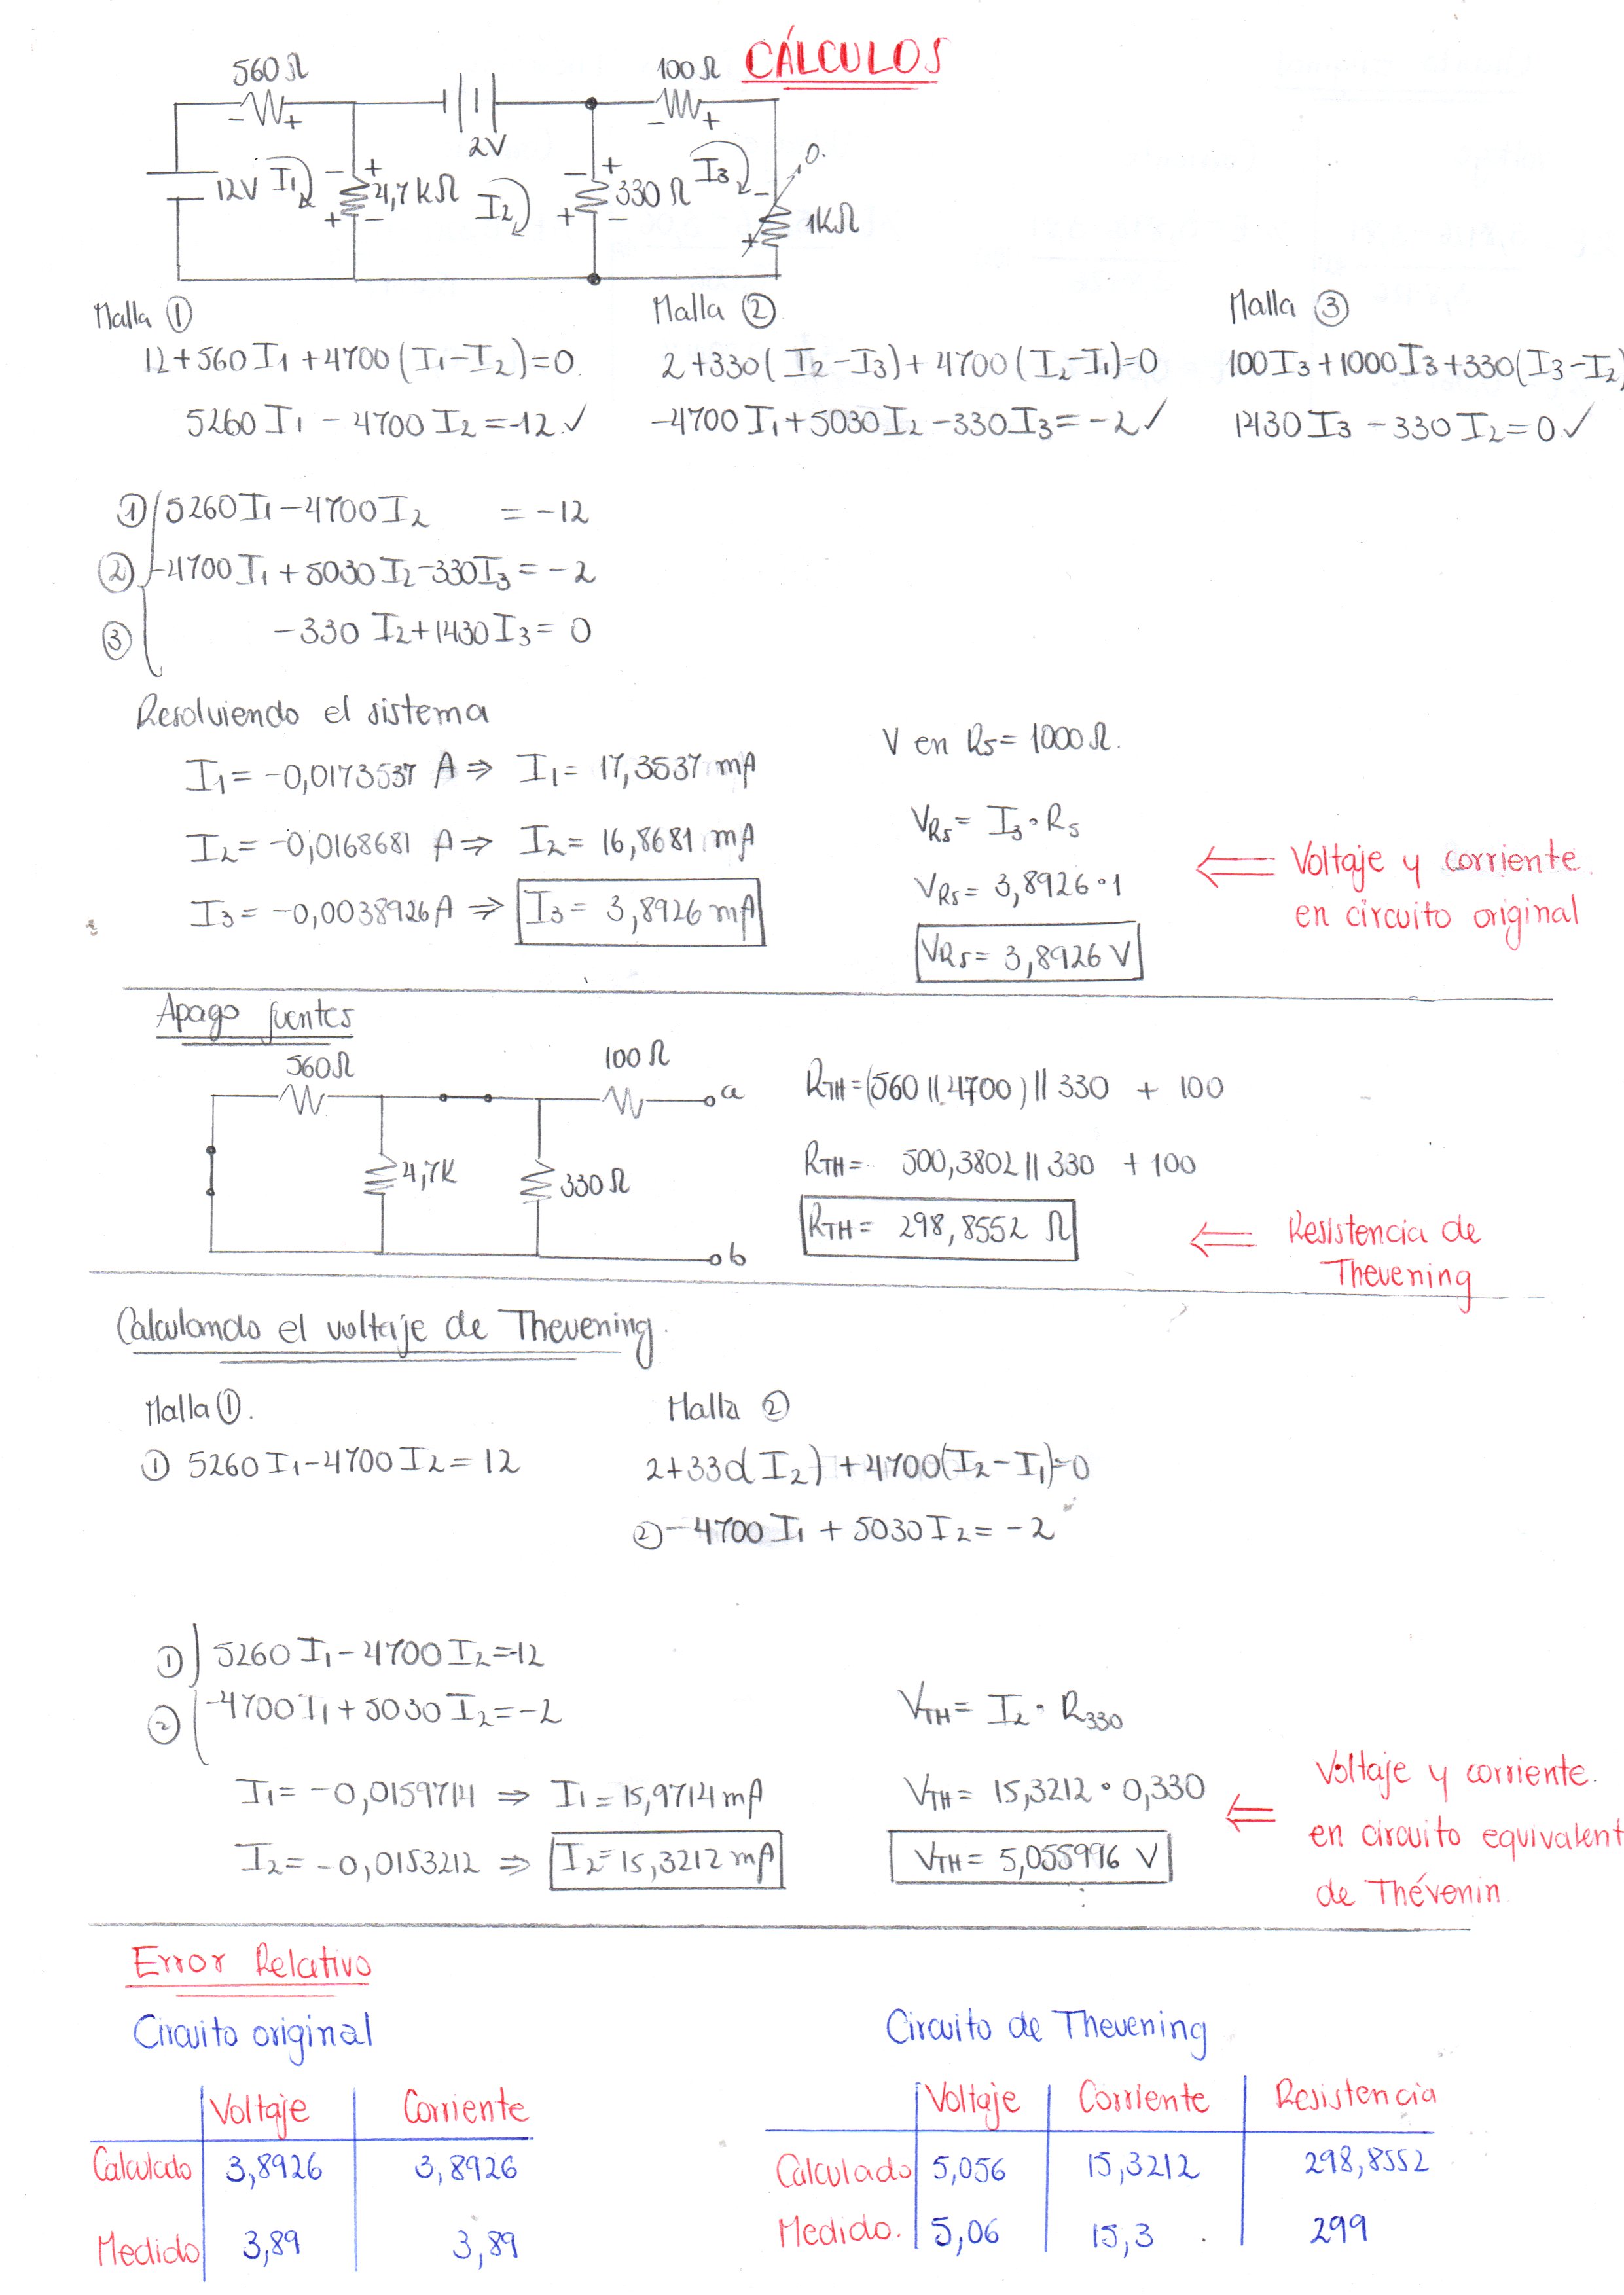 CÁLCULOS
560Ω
100Ω
2V
12V I₁
4,7kΩ
I₂
330Ω
I₃
0.
1KΩ
- +
Malla ①
12+560I₁+4700(I₁-I₂)=0
5260I₁ - 4700I₂=-12✓
Malla ②
2+330(I₂-I₃)+4700(I₂-I₁)=0
-4700I₁+5030I₂-330I₃=-2✓
Malla ③
100I₃+1000I₃+330(I₃-I₂)
1430I₃ - 330I₂=0✓
① 5260I₁-4700I₂ = -12
② -4700I₁+5030I₂-330I₃=-2
③ -330I₂+1430I₃= 0
Resolviendo el sistema
I₁=-0,0173537 A ⇒ I₁= 17,3537 mA
I₂=-0,0168681 A ⇒ I₂= 16,8681 mA
I₃=-0,0038926A ⇒ I₃= 3,8926 mA
V en R5= 1000Ω.
VR5= I₃·R5
VR5= 3,8926·1
VR5= 3,8926 V
⇐ Voltaje y corriente
en circuito original
Apago fuentes
560Ω
100Ω
a
4,7K
330Ω
b
RTH=(560||4700)||330 + 100
RTH= 500,3802||330 +100
RTH= 298,8552 Ω
⇐ Resistencia de
Thevening
Calculando el voltaje de Thevening.
Malla ①.
① 5260I₁-4700I₂= 12
Malla ②
2+330(I₂)+4700(I₂-I₁)=0
② -4700I₁ + 5030I₂= -2
① 5260I₁-4700I₂=-12
② -4700I₁+5030I₂=-2
I₁= -0,0159714 ⇒ I₁=15,9714mA
I₂= -0,0153212 ⇒ I₂=15,3212mA
VTH= I₂· R330
VTH= 15,3212·0,330
VTH= 5,055996 V
⇐ Voltaje y corriente.
en circuito equivalent
de Thévenin
Error Relativo
Circuito original
Voltaje Corriente
Calculado 3,8926 3,8926
Medido 3,89 3,89
Circuito de Thevening
Voltaje Corriente Resistencia
Calculado 5,056 15,3212 298,8552
Medido. 5,06 15,3 299